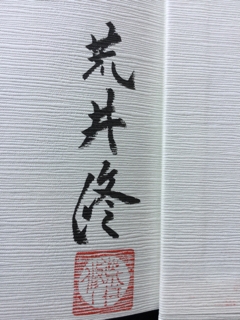 荒井修